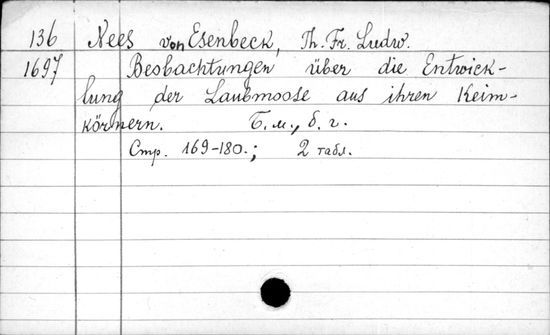 136 Nees von Esenbeck, Th. Fr. Ludw.
1697 Beobachtungen über die Entwick-
lung der Laubmoose aus ihren Keim-
körnern. Б.м., б.г.
Стр. 169-180.; 2 табл.